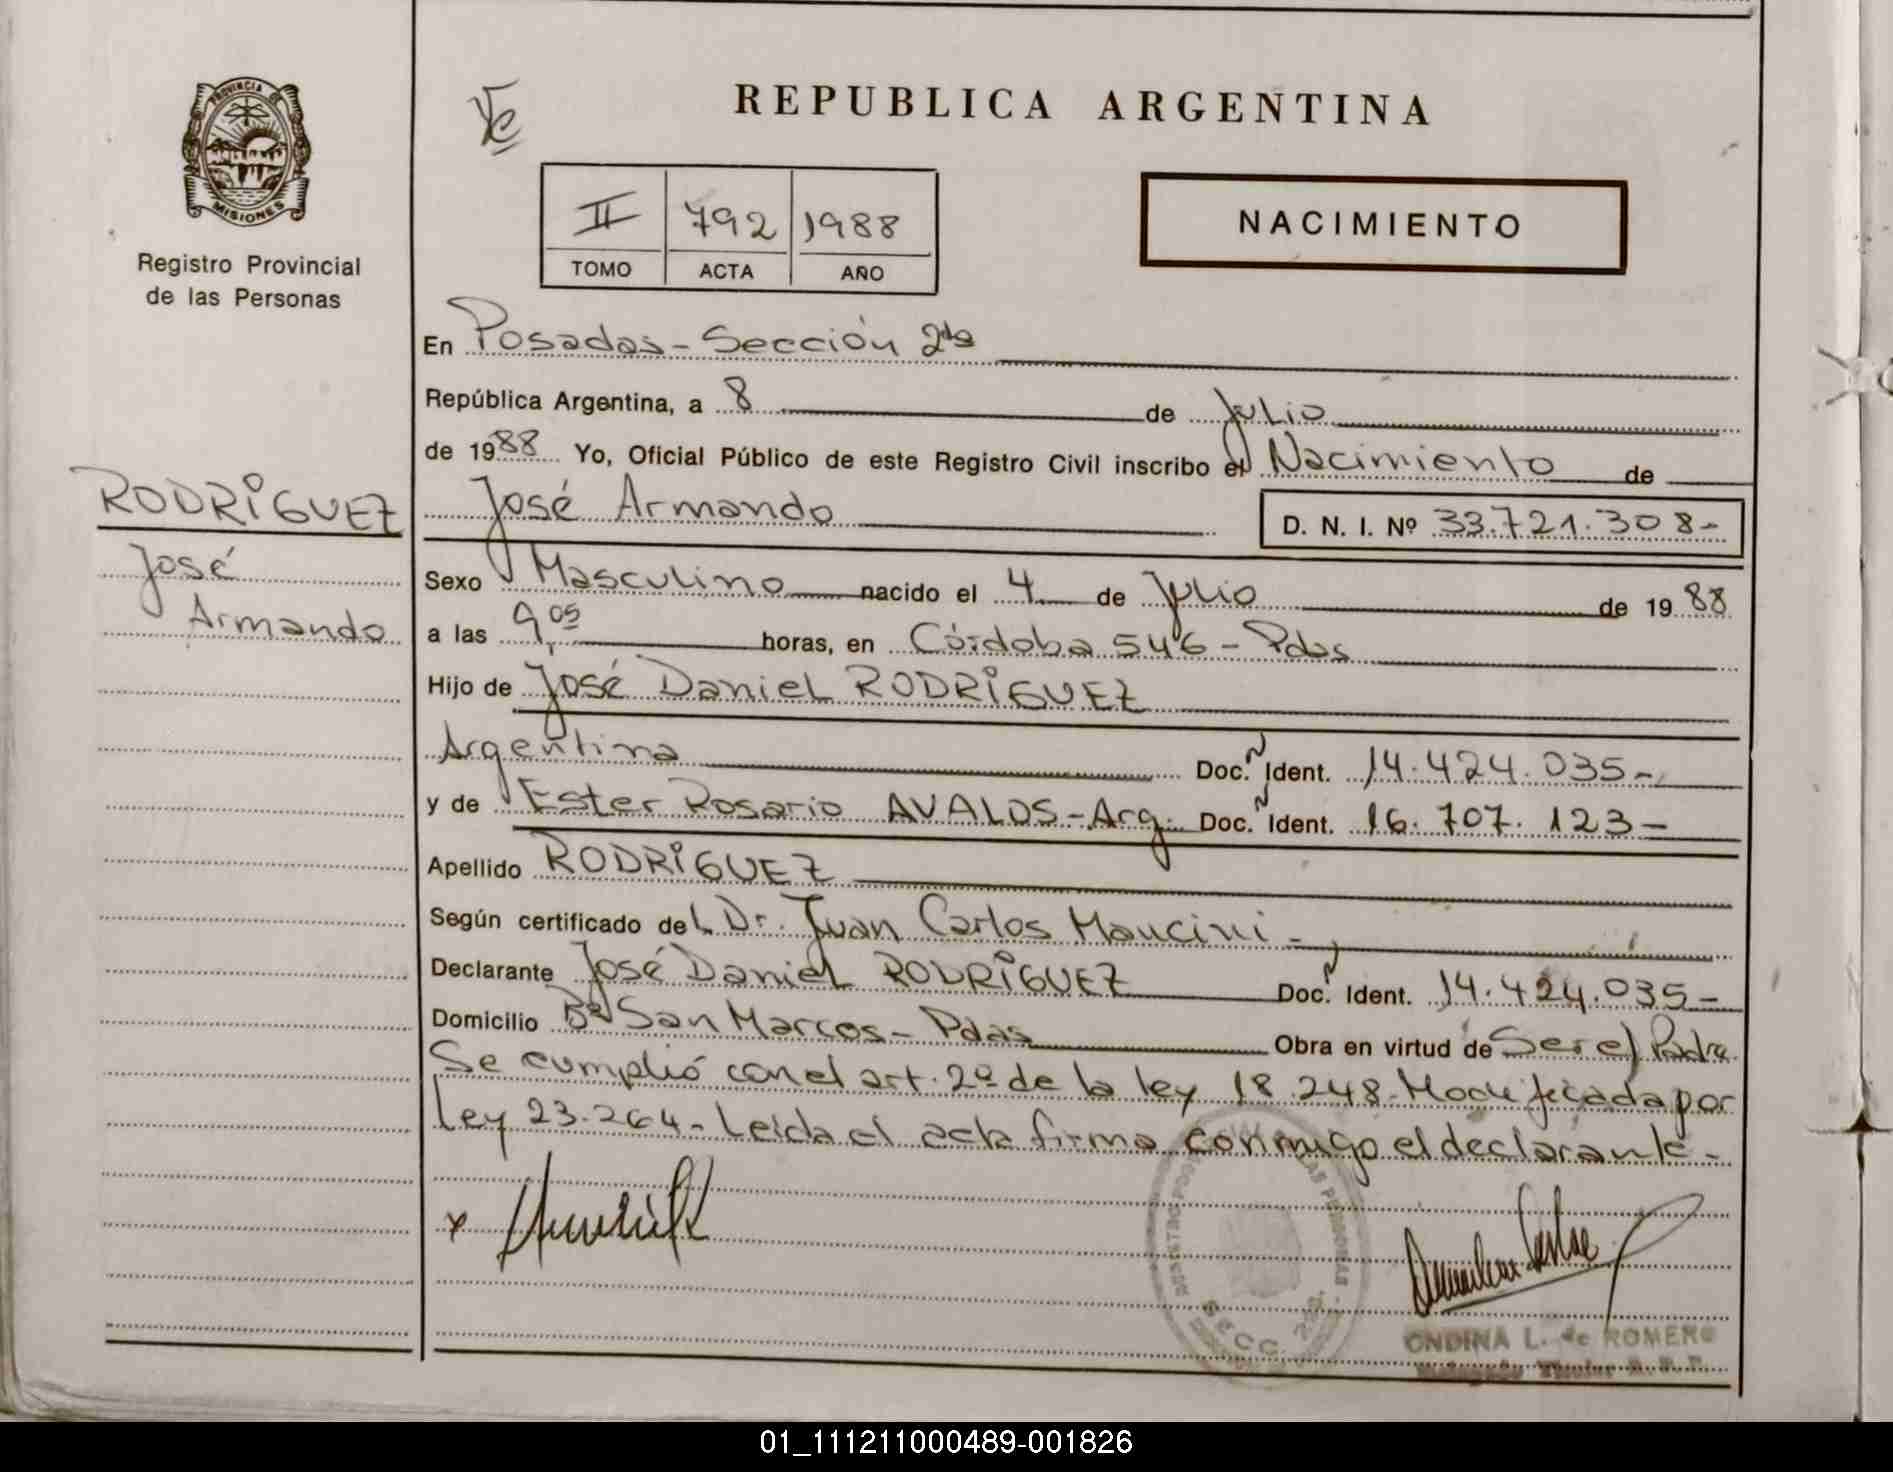 REPUBLICA ARGENTINA
PROVINCIA DE
MISIONES
Registro Provincial
de las Personas
II 792 1988
TOMO ACTA AÑO
NACIMIENTO
En Posadas - Sección 2da
República Argentina, a 8 de Julio
de 1988 Yo, Oficial Público de este Registro Civil inscribo el Nacimiento de
RODRIGUEZ
José
Armando
José Armando D. N. I. Nº 33.721.308-
Sexo Masculino nacido el 4 de Julio de 1988
a las 9,05 horas, en Córdoba 546 - Pdas
Hijo de José Daniel RODRIGUEZ
Argentina Doc. Ident. 14.424.035-
y de Ester Rosario AVALOS - Arg. Doc. Ident. 16.707.123-
Apellido RODRIGUEZ
Según certificado del Dr. Juan Carlos Mancini -
Declarante José Daniel RODRIGUEZ Doc. Ident. 14.424.035-
Domicilio Bº San Marcos - Pdas Obra en virtud de Ser el Padre
Se cumplió con el art. 2º de la ley 18.248 - Modificada por
Ley 23.264 - Leída el acta firma conmigo el declarante -
SECC. 2da.
ONDINA L. de ROMERO
01_111211000489-001826